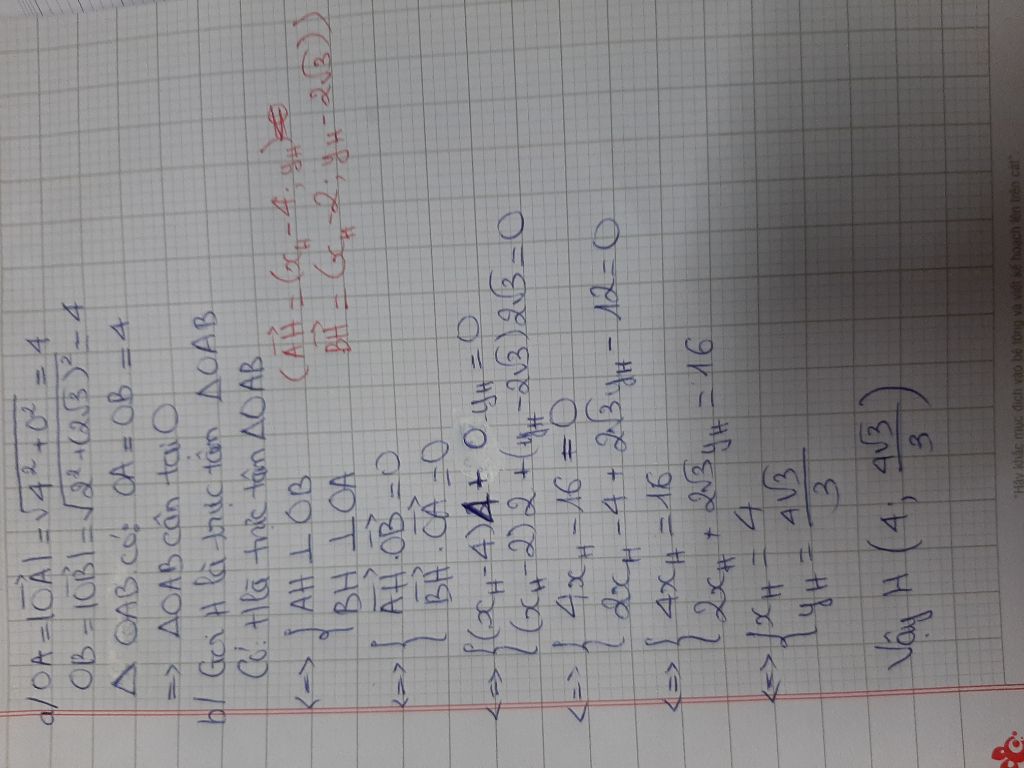 a/ OA = |OA⃗| = √(4² + 0²) = 4
OB = |OB⃗| = √(2² + (2√3)²) = 4
Δ OAB có: OA = OB = 4
=> ΔOAB cân tại O
b/ Gọi H là trực tâm ΔOAB
Có: H là trực tâm ΔOAB
<=> { AH ⊥ OB
BH ⊥ OA
(AH⃗ = (x_H - 4; y_H)
BH⃗ = (x_H - 2; y_H - 2√3))
<=> { AH⃗.OB⃗ = 0
BH⃗.OA⃗ = 0
<=> { (x_H - 4)4 + 0.y_H = 0
(x_H - 2)2 + (y_H - 2√3)2√3 = 0
<=> { 4x_H - 16 = 0
2x_H - 4 + 2√3y_H - 12 = 0
<=> { 4x_H = 16
2x_H + 2√3y_H = 16
<=> { x_H = 4
y_H = 4√3/3
Vậy H (4; 4√3/3)
"Hãy khắc mục đích vào bê tông và viết kế hoạch lên trên cát"